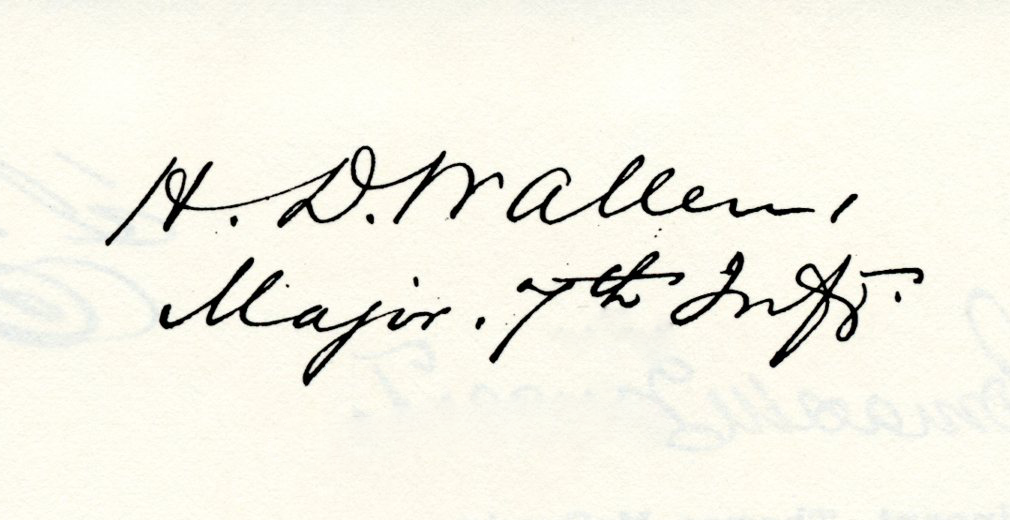 H. D. Wallen,
Major. 7th Inft.